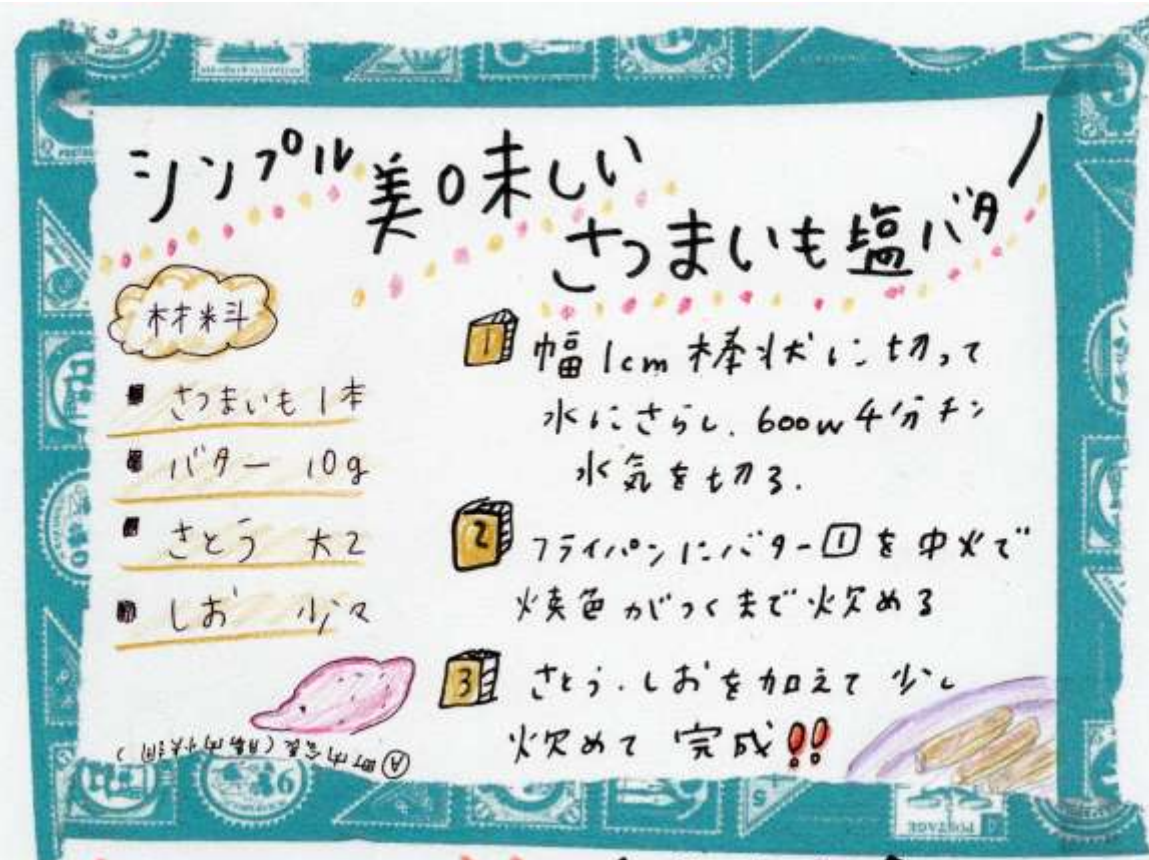 シンプル美味しい
さつまいも塩バター
材料
さつまいも 1本
バター 10g
さとう 大2
しお 少々
1 幅1cm棒状に切って
水にさらし、600w4分チン
水気を切る.
2 フライパンにバター1を中火で
焼色がつくまで炒める
3 さとう・しおを加えて 少し
炒めて 完成!!
POSTAGE